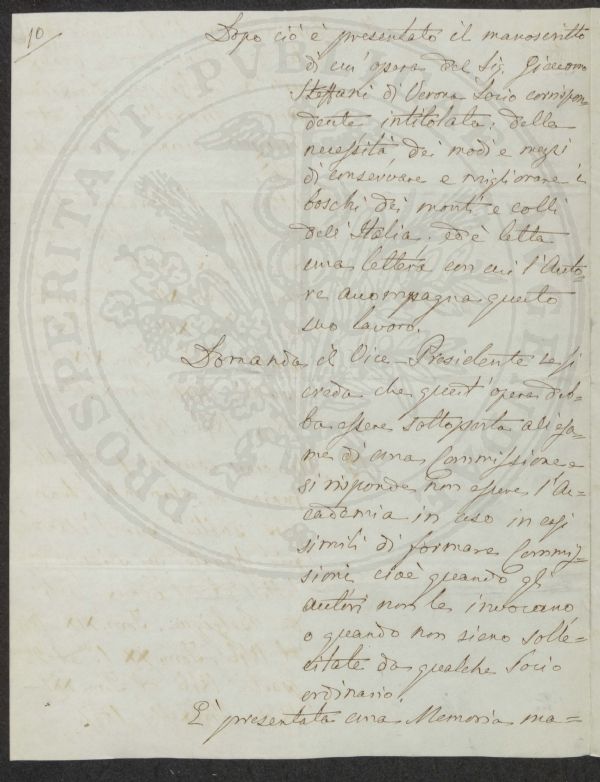 10
Dopo ciò è presentato il manoscritto
di un' opera del Sig. Giacomo
Steffani di Verona Socio corrispon=
dente intitolata: della
necessità dei modi e mezzi
di conservare e migliorare i
boschi dei monti e colli
dell' Italia. ed è letta
una lettera con cui l'Auto=
re accompagna questo
suo lavoro.
Domanda il Vice-Presidente se si
creda che quest' opera deb=
ba essere sottoposta all esa=
me di una Commissione e
si risponde non essere l'Ac=
cademia in uso in casi
simili di formare Commis=
sioni cioè quando gli
autori non le invocano
o quando non sieno solle=
citate da qualche Socio
ordinario.
E' presentata una Memoria ma=
PROSPERITATI PUBLICAE AUGENDAE